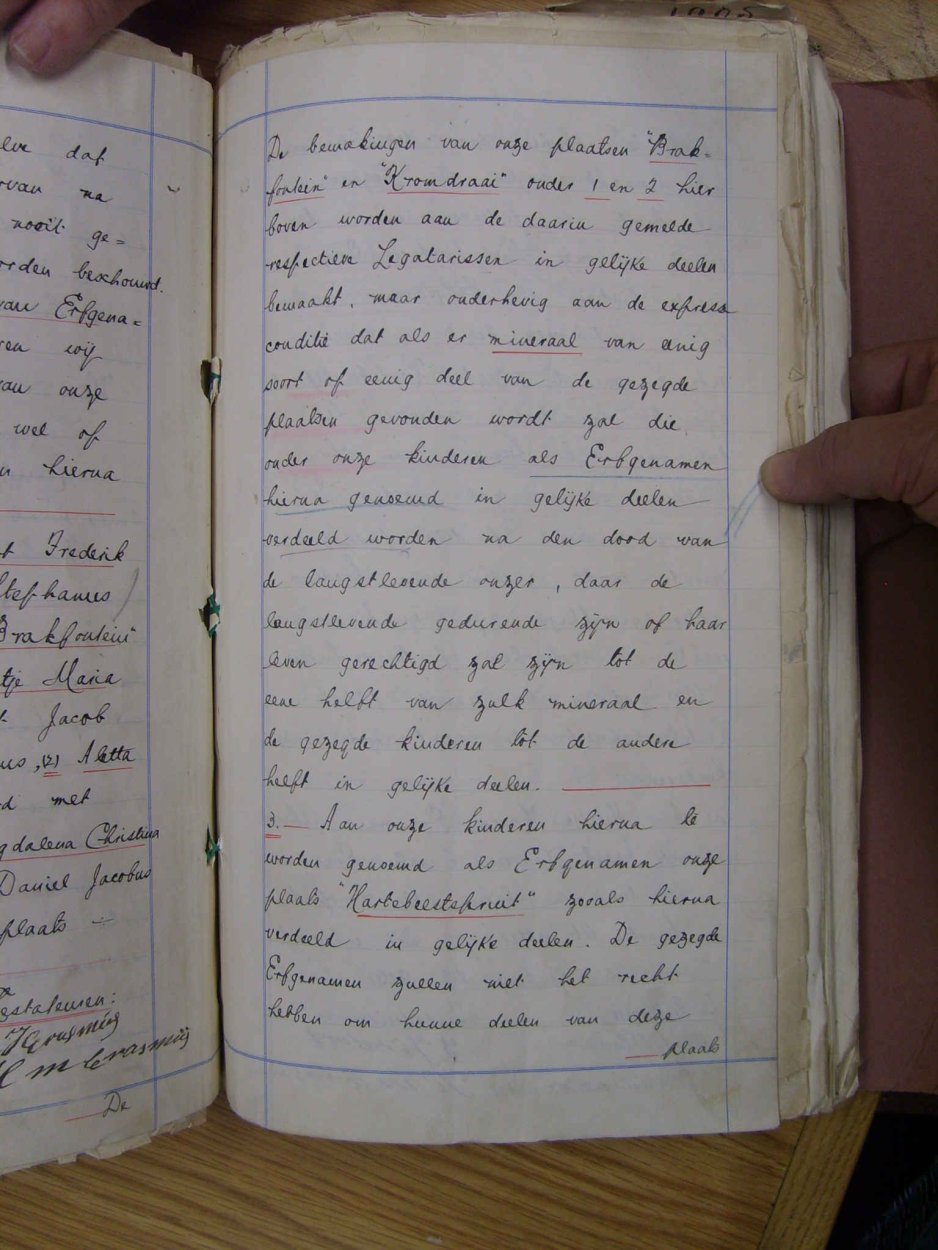 lve dat
rvan na
nooit ge=
orden beschouwd.
van Erfgena=
ren wij
van onze
wel of
n hierna
t Frederik
Stephanus
Brakfontein"
tje Maria
t Jacob
us, (2) Aletta
d met
gdalena Christina
Daniel Jacobus
plaats —
Testateuren:
J Erasmus
H m Erasmus
De
De bemakingen van onze plaatsen "Brak=
fontein" en "Kromdraai" onder 1 en 2 hier
boven worden aan de daarin gemelde
respectieve Legatarissen in gelijke deelen
bemaakt, maar onderhevig aan de expresse
conditie dat als er mineraal van eenig
soort of eenig deel van de gezegde
plaatsen gevonden wordt zal die
onder onze kinderen als Erfgenamen
hierna genoemd in gelijke deelen
verdeeld worden na den dood van
de langstlevende onzer, daar de
langstlevende gedurende zijn of haar
leven gerechtigd zal zijn tot de
eene helft van zulk mineraal en
de gezegde kinderen tot de andere
helft in gelijke deelen.
3. — Aan onze kinderen hierna te
worden genoemd als Erfgenamen onze
plaats "Hartebeestspruit" zooals hierna
verdeeld in gelijke deelen. De gezegde
Erfgenamen zullen niet het recht
hebben om hunne deelen van deze
plaats